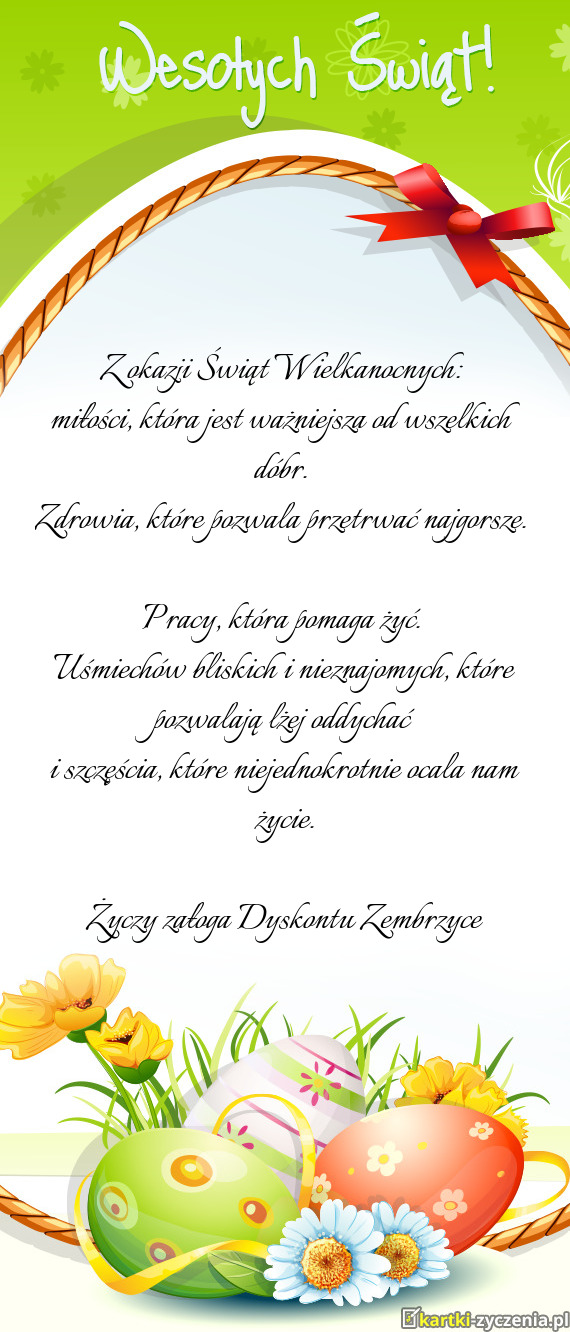 Wesołych Świąt!
Z okazji Świąt Wielkanocnych:
miłości, która jest ważniejsza od wszelkich
dóbr.
Zdrowia, które pozwala przetrwać najgorsze.
Pracy, która pomaga żyć.
Uśmiechów bliskich i nieznajomych, które
pozwalają lżej oddychać
i szczęścia, które niejednokrotnie ocala nam
życie.
Życzy załoga Dyskontu Zembrzyce
kartki-zyczenia.pl